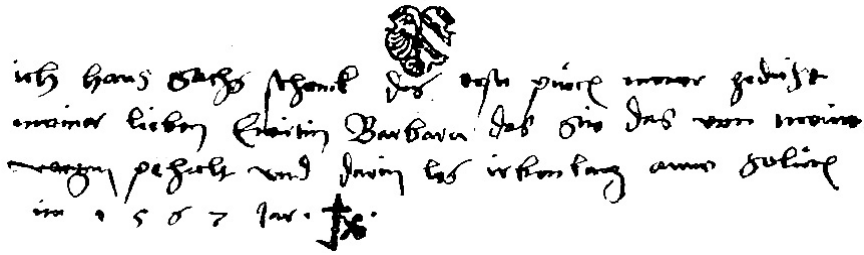 ich Hans Sachs schenck das erst puech meiner gedicht
meiner lieben Ewirtin Barbara das sie das von meinet
wegen pehalt und darin les
im 1567 Jar.